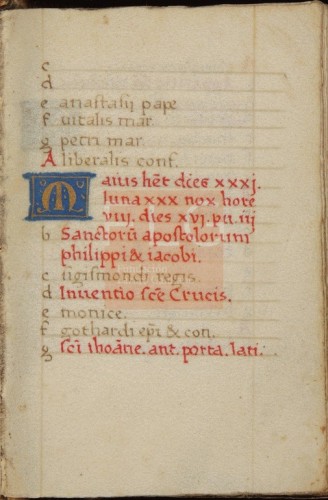 c
d
e anastasii pape
f vitalis mar.
g petri mar
A liberalis conf.
Maius het dies xxxj.
luna xxx nox hore
viij. dies xvj. pu. iij
b Sanctorū apostolorum
philippi & iacobi.
c sigismondi regis.
d Inventio sce Crucis.
e monice.
f gothardi epi & con.
g sci ihoānis. ant. porta. lati.